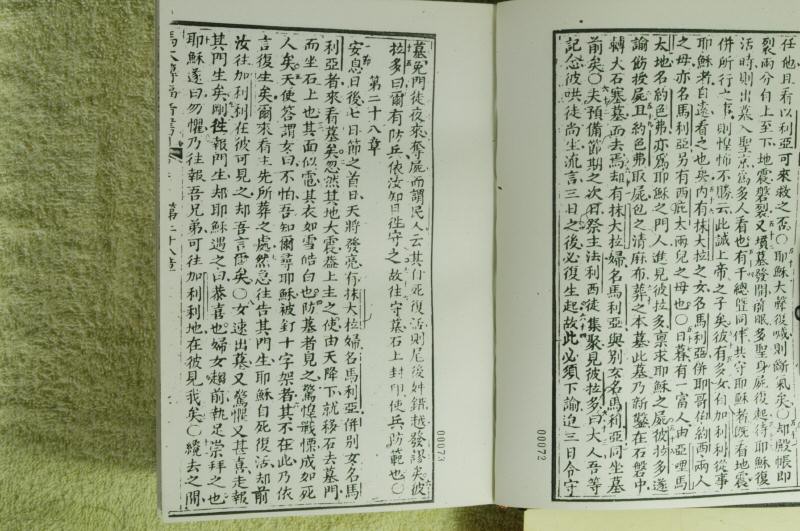 任他且看以利亞可來救之否〇耶穌大聲復喊則斷氣矣〇却殿帳即
裂兩分自上至下地震磐裂又墳墓發開前眠多聖身屍復起待耶穌復
活時則出墓入聖京為多人看也有千總曁同伴共守耶穌者既看地震
併所行之事則惶怖不勝云此誠上帝之子矣彼有多女自加利利從事
耶穌者自遠看之也與内有抹大拉之女名馬利亞併耶哥伯約西兩人
之母亦名馬利亞另有西庇太兩兒之母也〇日暮有一富人由亞哩馬
太地名約色弗亦為耶穌之門人進見彼拉多稟求耶穌之屍彼拉多遂
諭飭按屍且約色弗取屍包之清麻布葬之本墓此墓乃新鑿在石磐中
轉大石塞墓而去焉却有抹大拉婦名馬利亞與別女名馬利亞同坐墓
前矣〇夫預備節期之次日祭主法利西徒集聚見彼拉多曰大人吾等
記念彼哄徒尚生流言三日之後必復生起故此必須下諭迨三日令守
00072
墓免門徒夜來奪屍而謂民人云其什死復活則尾後姓錯越發謬矣彼
拉多曰爾有防兵依汝知自往守之故往守墓石上封印使兵防範也〇
第二十八章
安息日後七日節之首日天將發亮有抹大拉婦名馬利亞併別女名馬
利亞者來看墓矣忽然其地大震蓋上主之使由天降下就移石去墓門
而坐石上也其面似電其衣如雪皓白也防墓者見之驚惶戰慄成如死
人矣天使答謂女曰不怕吾知爾尋耶穌被釘十字架者其不在此乃依
言復生矣爾來看主先所葬之處然急往告其門生耶穌自死復活却前
汝往加利利在彼可見之却吾言爾矣〇女速出墓又驚懼又甚喜走報
其門生矣剛往報門生却耶穌遇之曰恭喜也婦女趨前執足崇拜之也
耶穌遂曰勿懼乃往報吾兄弟可往加利利地在彼見我矣〇纔去之間
第二十八章
00073